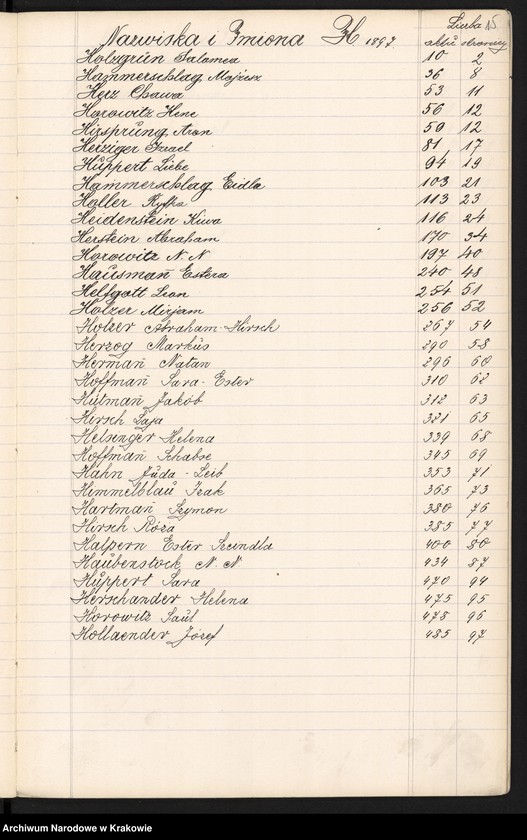 Liczba 15
Nazwiska i Imiona H. 1897. aktu strony
Holzgrün Salomea 10 2
Hammerschlag Mojżesz 36 8
Herz Chawa 53 11
Horowitz Hene 56 12
Hirsprung Aron 59 12
Herziger Izrael 81 17
Huppert Liebe 94 19
Hammerschlag Eidla 103 21
Haller Ryfka 113 23
Heidenstein Kiwa 116 24
Herstein Abraham 170 34
Horowitz N. N. 197 40
Hausman Estera 240 48
Helfgott Leon 254 51
Holzer Mirjam 256 52
Holzer Abraham-Hirsch 267 54
Herzog Markus 290 58
Herman Natan 296 60
Hoffman Sara-Ester 310 62
Hutman Jakób 312 63
Hirsch Łaja 321 65
Helsinger Helena 339 68
Hoffman Schabse 345 69
Hahn Juda-Leib 353 71
Himmelblau Izak 365 73
Hartman Szymon 380 76
Hirsch Róża 385 77
Halpern Ester Scheindla 400 80
Haubenstock N. N. 434 87
Huppert Sara 470 94
Herschander Helena 475 95
Horowitz Saul 478 96
Hollaender Józef 485 97
Archiwum Narodowe w Krakowie